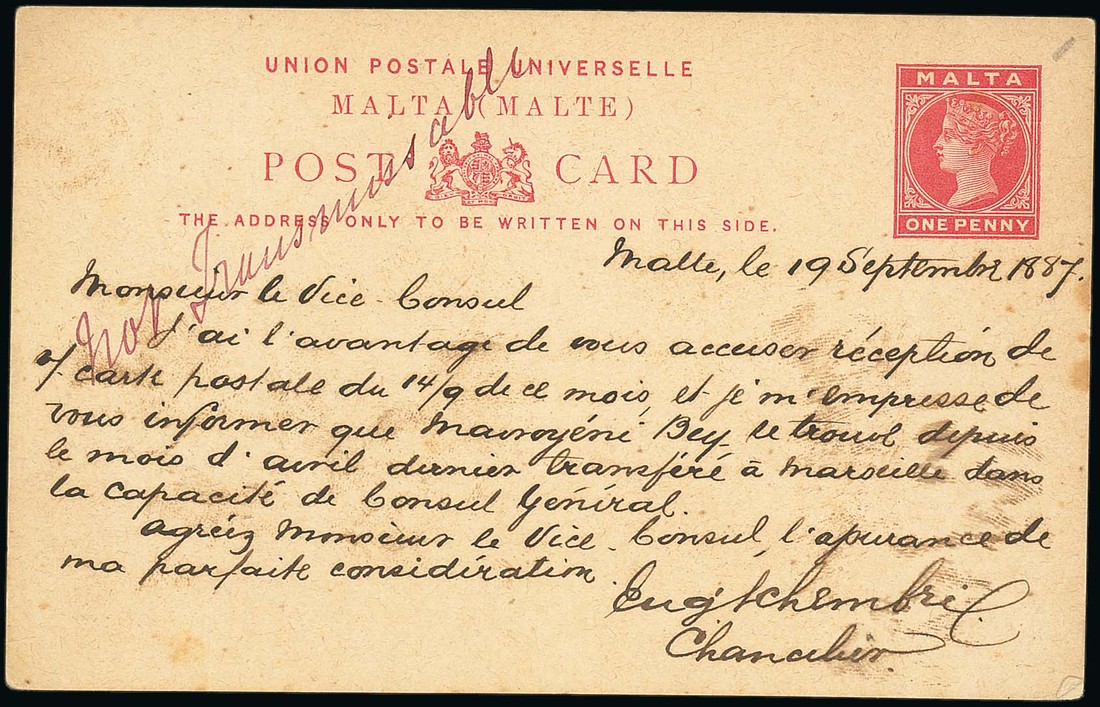 UNION POSTALE UNIVERSELLE
MALTA (MALTE)
POST CARD
THE ADDRESS ONLY TO BE WRITTEN ON THIS SIDE.
MALTA
ONE PENNY
Not Transmissable
Malte, le 19 Septembre 1887.
Monsieur le Vice-Consul
J'ai l'avantage de vous accuser réception de
v/ carte postale du 14/9 de ce mois, et je m'empresse de
vous informer que Mavroyéni Bey se trouve depuis
le mois d'avril dernier transféré à Marseille dans
la capacité de Consul Général.
Agréez Monsieur le Vice-Consul, l'assurance de
ma parfaite considération
Eug Schembri
Chancelier